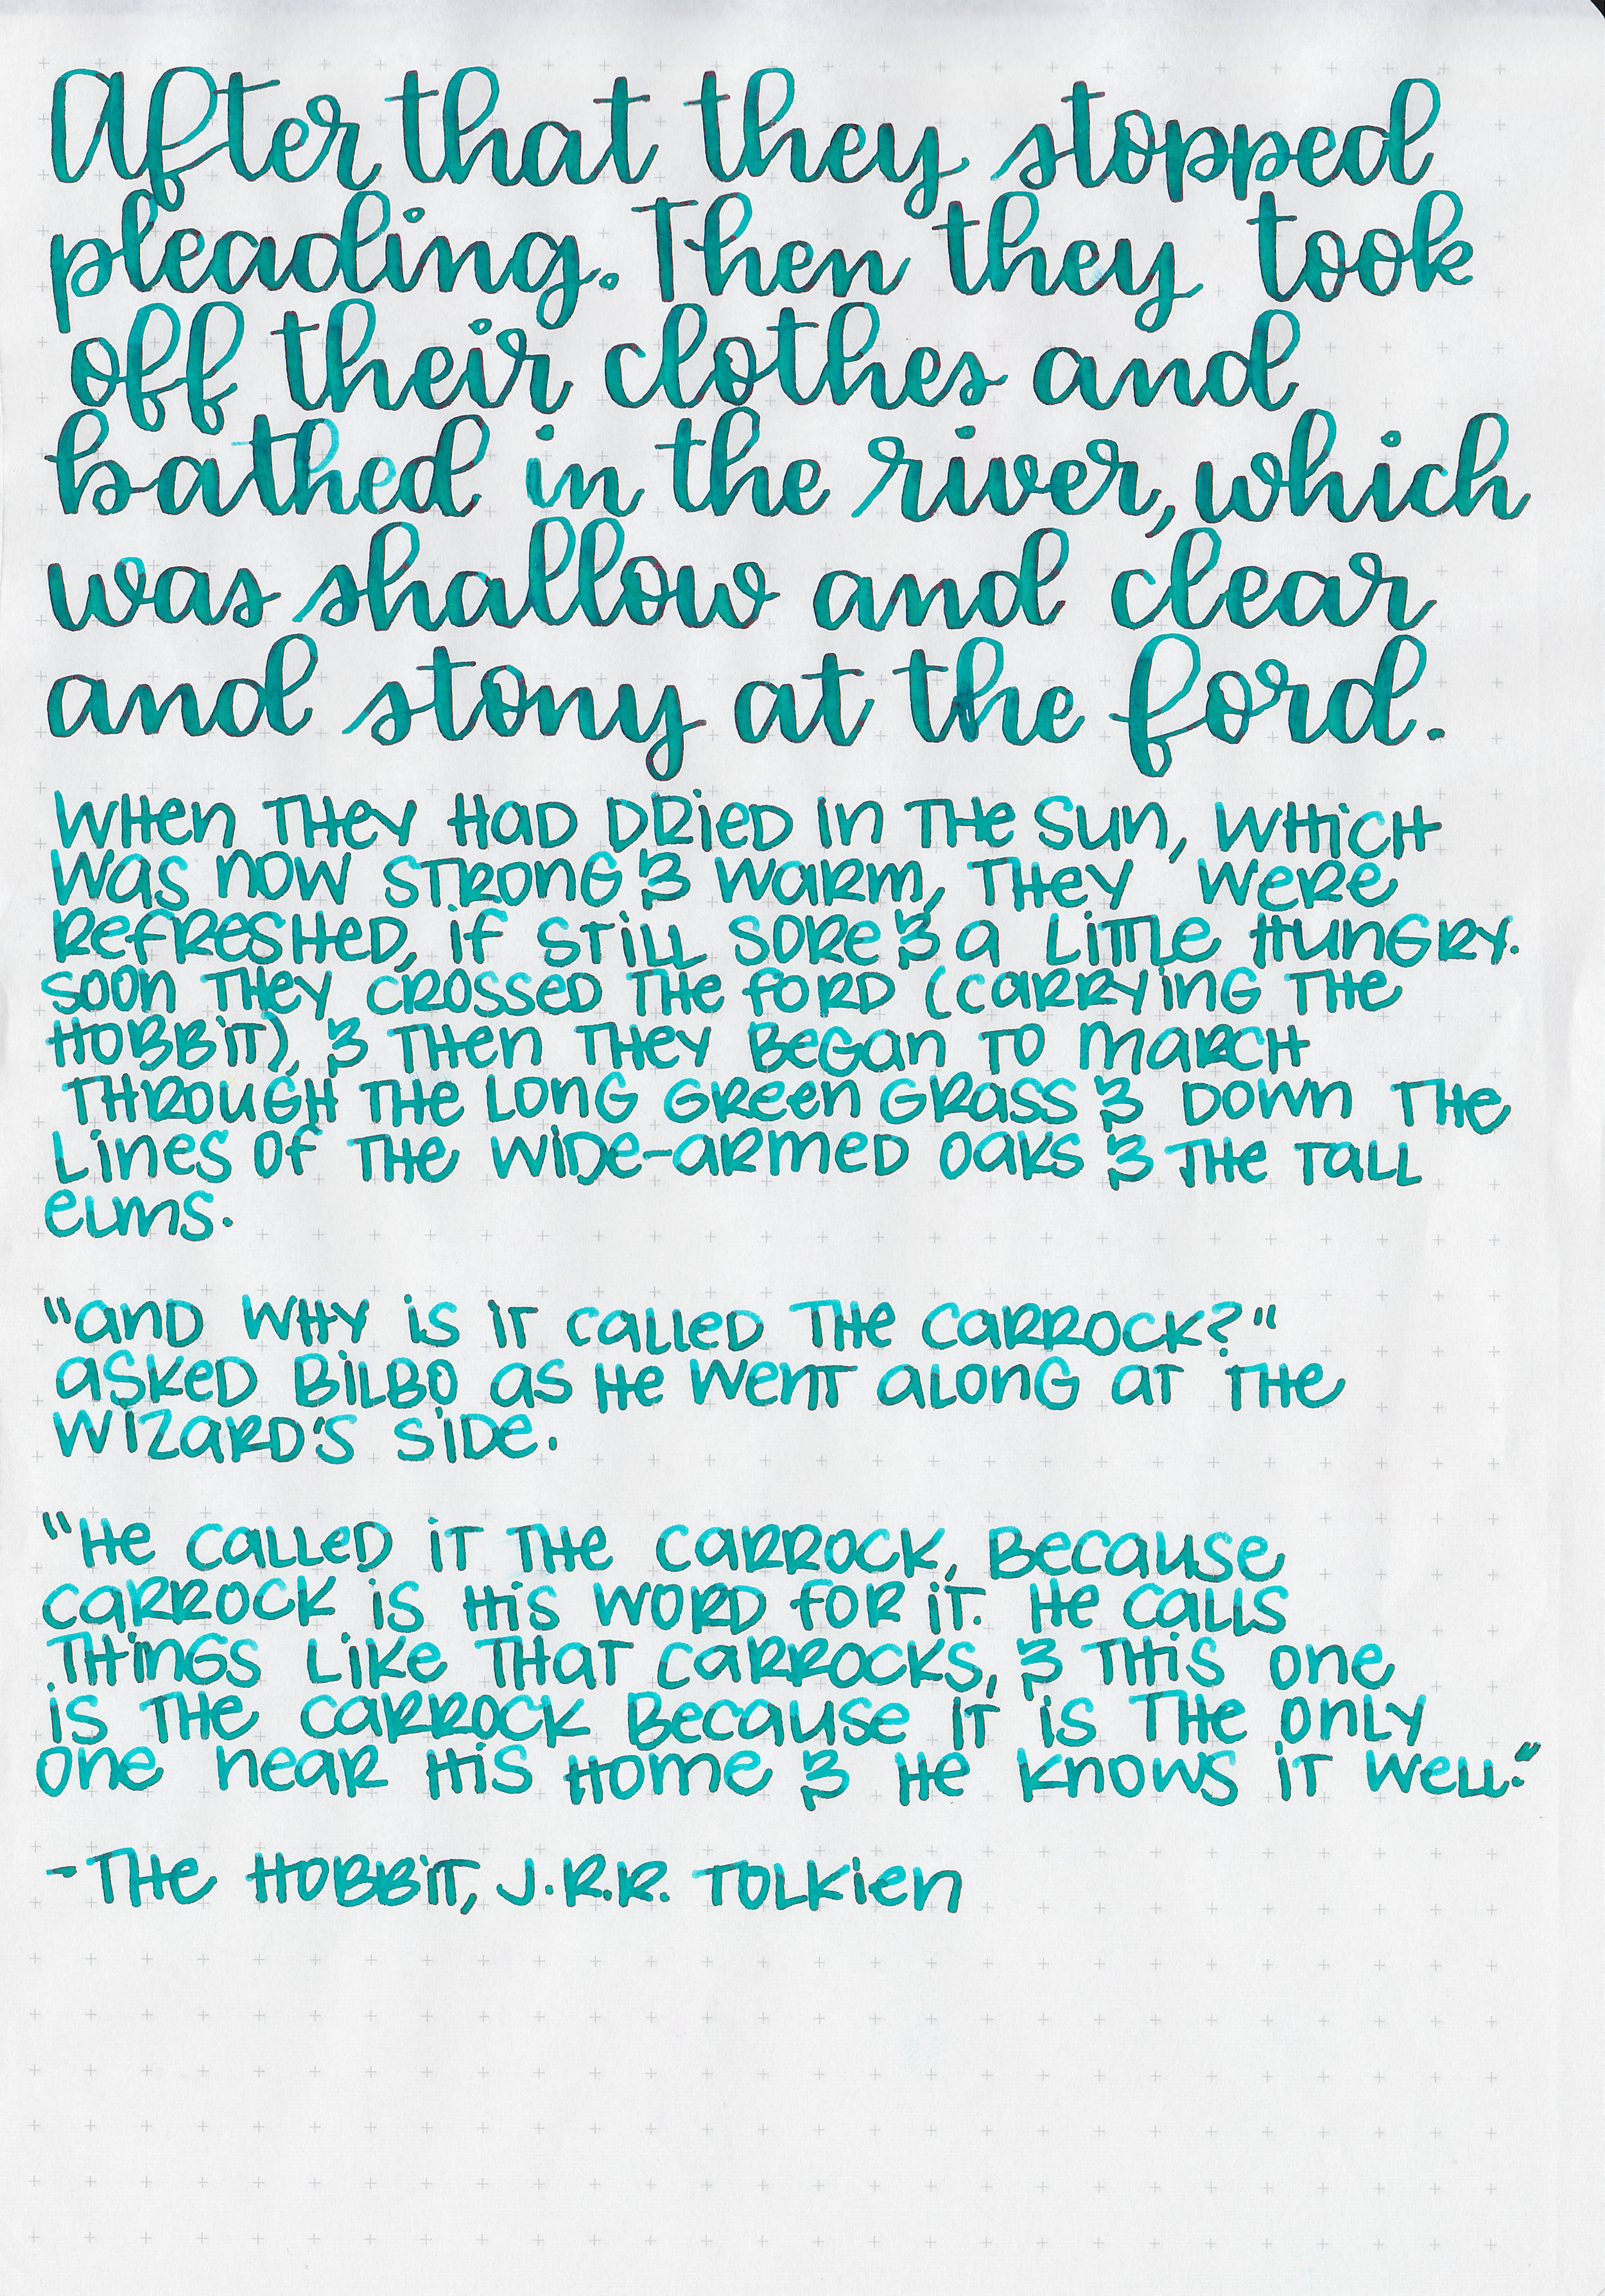 After that they stopped
pleading. Then they took
off their clothes and
bathed in the river, which
was shallow and clear
and stony at the ford.
When they had dried in the sun, which
was now strong & warm, they were
refreshed, if still sore & a little hungry.
Soon they crossed the ford (carrying the
hobbit), & then they began to march
through the long green grass & down the
lines of the wide-armed oaks & the tall
elms.
"And why is it called the Carrock?"
asked Bilbo as he went along at the
wizard's side.
"He called it the Carrock, because
carrock is his word for it. He calls
things like that carrocks, & this one
is the Carrock because it is the only
one near his home & he knows it well."
-The Hobbit, J.R.R. Tolkien